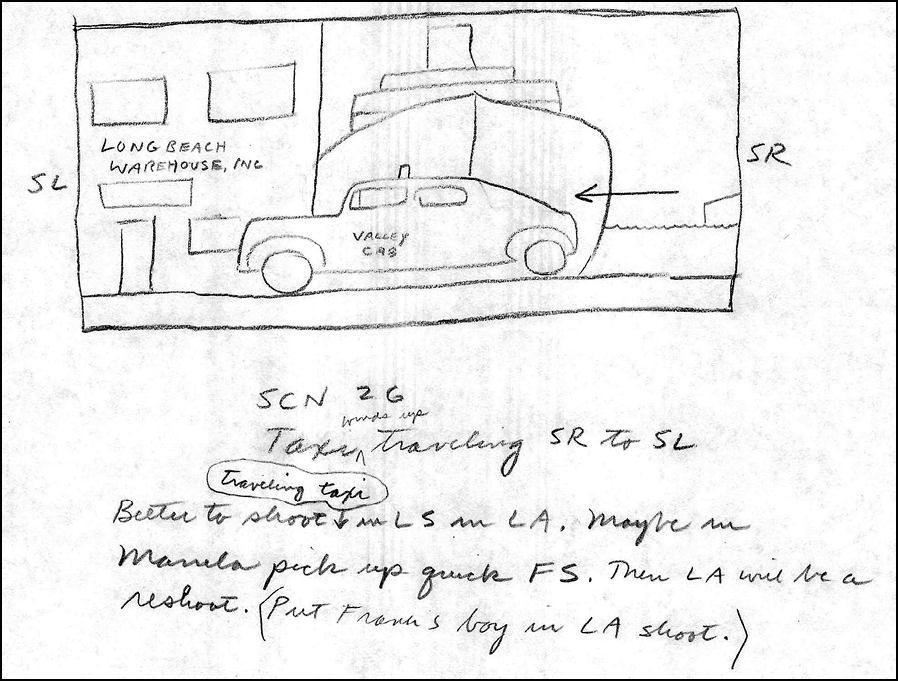 LONG BEACH
WAREHOUSE, INC
SL
SR
VALLEY
CAB
SCN 26
winds up
Taxi traveling SR to SL
traveling taxi
Better to shoot in LS in LA. Maybe in
Manila pick up quick FS. Then LA will be a
reshoot. (Put Frank's boy in LA shoot.)